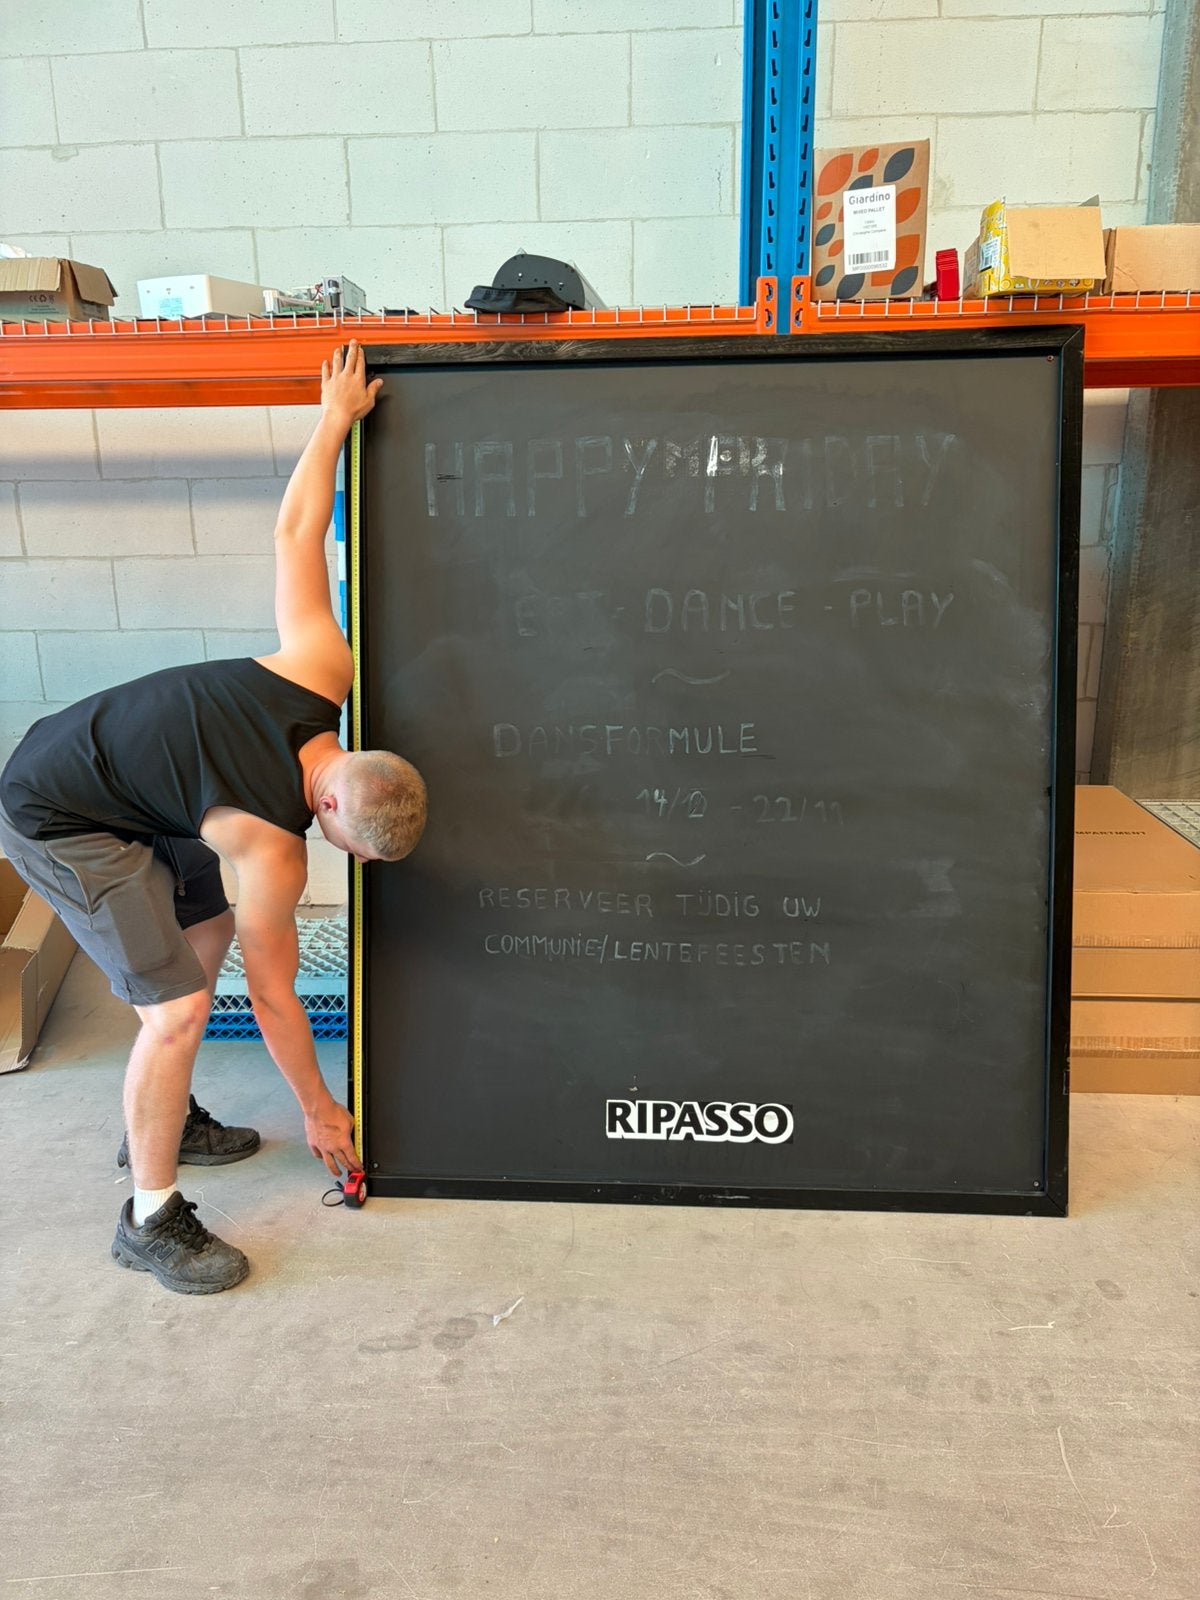 Giardino
MIXED PALLET
HAPPY FRIDAY
EAT - DANCE - PLAY
DANSFORMULE
14/12 - 22/11
RESERVEER TIJDIG UW
COMMUNIE/LENTEFEESTEN
RIPASSO
MPARTMENT